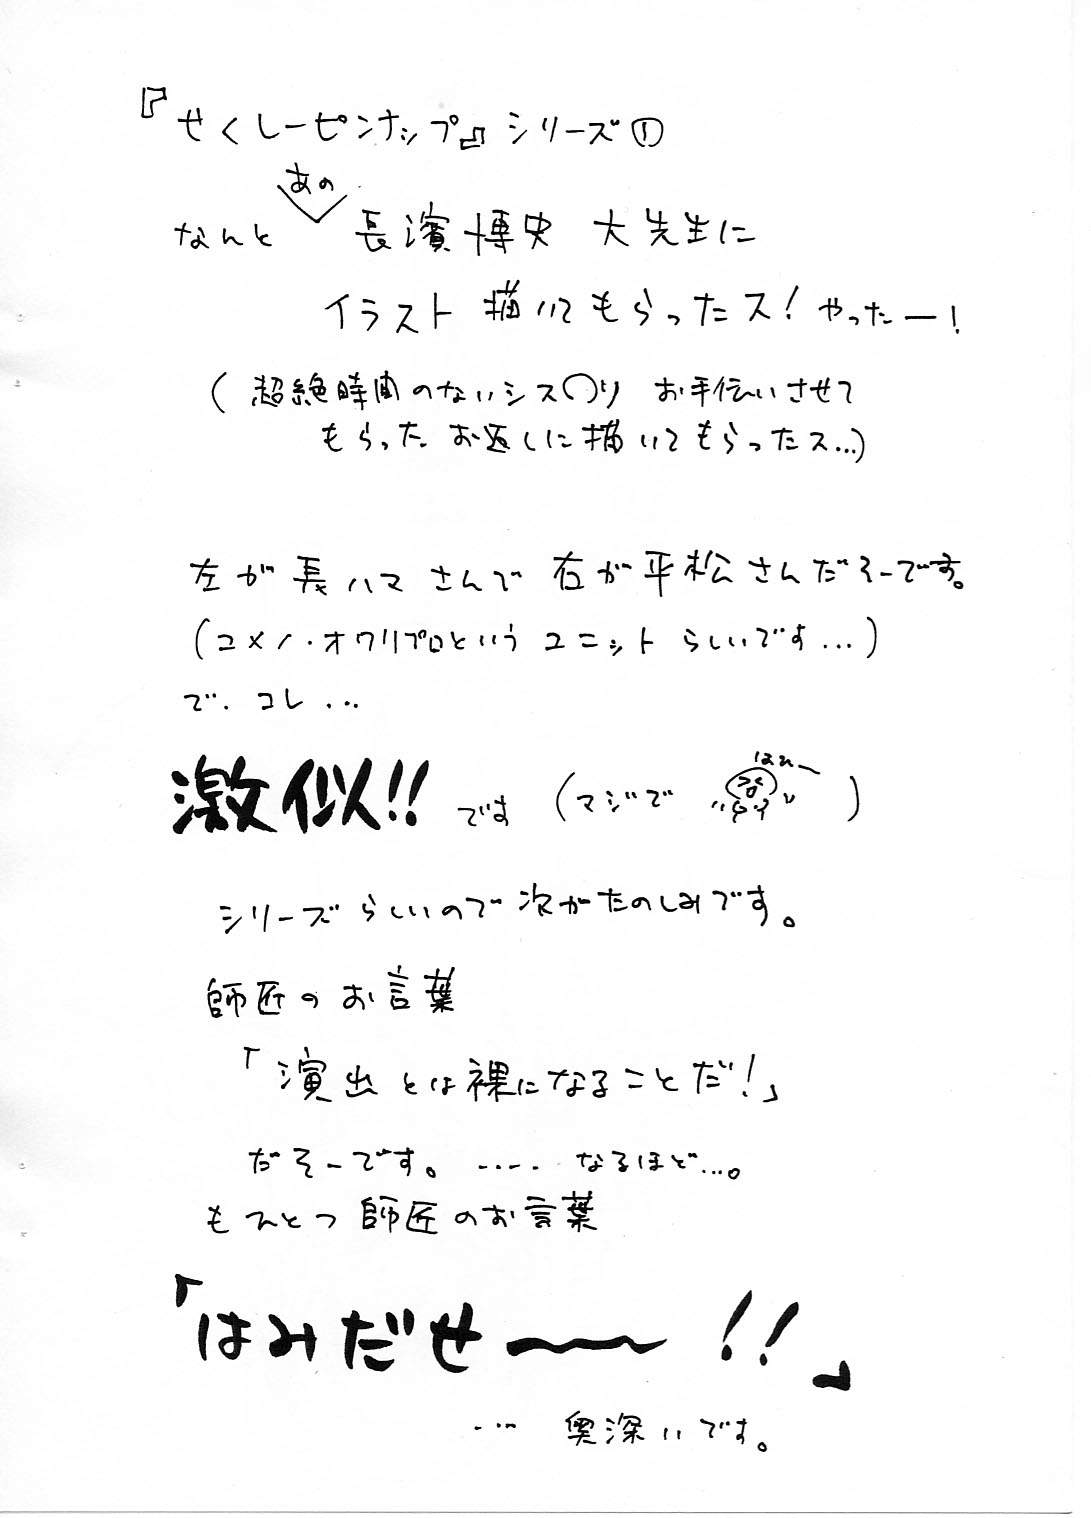 『せくしーピンナップ』シリーズ①
あの
なんと 長濱博史 大先生に
イラスト 描いてもらったス! やったー!
(超絶時間のないシス〇り お手伝いさせて
もらった お返しに描いてもらったス…)
左が長ハマさんで 右が平松さんだそーです。
(ユメノ・オワリプロという ユニットらしいです…)
で. コレ…
はひー
激似!! です (マジで )
シリーズらしいので次がたのしみです。
師匠のお言葉
「演出とは裸になることだ!」
だそーです。 ‥‥. なるほど…。
もひとつ師匠のお言葉
「はみだせ〜〜!!」
… 奥深いです。